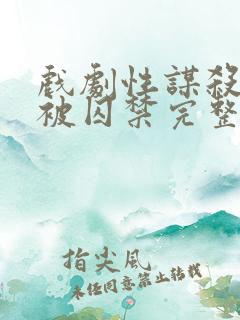 戲劇性謀殺
被囚禁完整
指尖風
未任同意禁止轉載